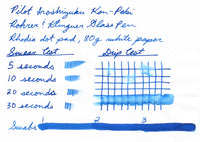 Pilot Iroshizuku Kon-Peki
Rohrer & Klingner Glass Pen
Rhodia dot pad, 80g white paper
Smear Test Drip Test
5 seconds
10 seconds
20 seconds
30 seconds
Swabs 1 2 3